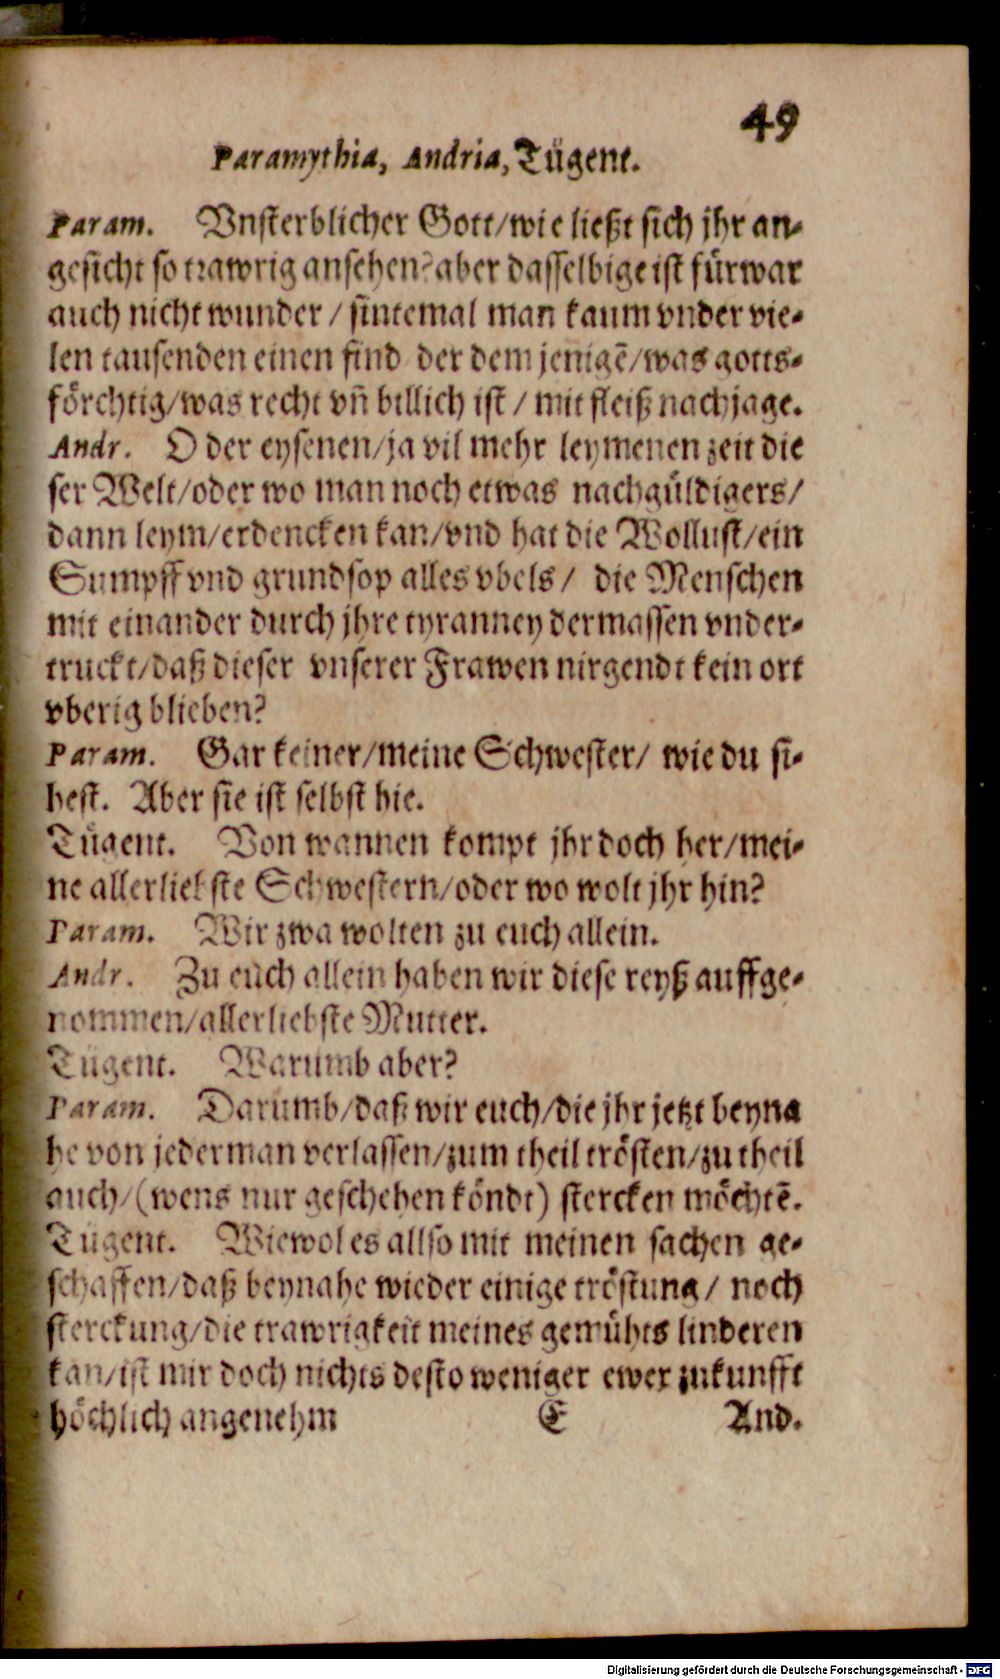 49
Paramythia, Andria, Tůgent.
Param. Vnsterblicher Gott/wie ließt sich jhr an-
gesicht so trawrig ansehen? aber dasselbige ist fürwar
auch nicht wunder / sintemal man kaum vnder vie-
len tausenden einen find der dem jenigē/was gotts-
förchtig/was recht vñ billich ist / mit fleiß nachjage.
Andr. O der eysenen/ja vil mehr leymenen zeit die
ser Welt/oder wo man noch etwas nachgůldigers/
dann leym/erdencken kan/vnd hat die Wollust/ein
Sumpff vnd grundsop alles vbels / die Menschen
mit einander durch jhre tyranney dermassen vnder-
truckt/daß dieser vnserer Frawen nirgendt kein ort
vberig blieben?
Param. Gar keiner/meine Schwester/ wie du si-
hest. Aber sie ist selbst hie.
Tůgent. Von wannen kompt jhr doch her/mei-
ne allerliebste Schwestern/oder wo wolt jhr hin?
Param. Wir zwa wolten zu euch allein.
Andr. Zu euch allein haben wir diese reyß auffge-
nommen/allerliebste Mutter.
Tůgent. Warumb aber?
Param. Darumb/daß wir euch/die jhr jetzt beyna
he von jederman verlassen/zum theil trösten/zu theil
auch/(wens nur geschehen köndt) stercken möchtē.
Tůgent. Wiewol es allso mit meinen sachen ge-
schaffen/daß beynahe wieder einige tröstung / noch
sterckung/die trawrigkeit meines gemůhts linderen
kan/ist mir doch nichts desto weniger ewer zukunfft
höchlich angenehm E And.
Digitalisierung gefördert durch die Deutsche Forschungsgemeinschaft - DFG